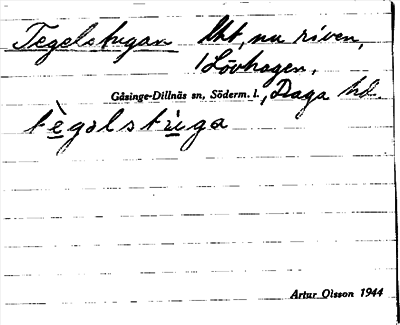 Tegelstugan Lht, nu riven,
/Lövhagen,
Gåsinge-Dillnäs sn, Söderm. l., Daga hd.
tègəlstùga
Artur Olsson 1944